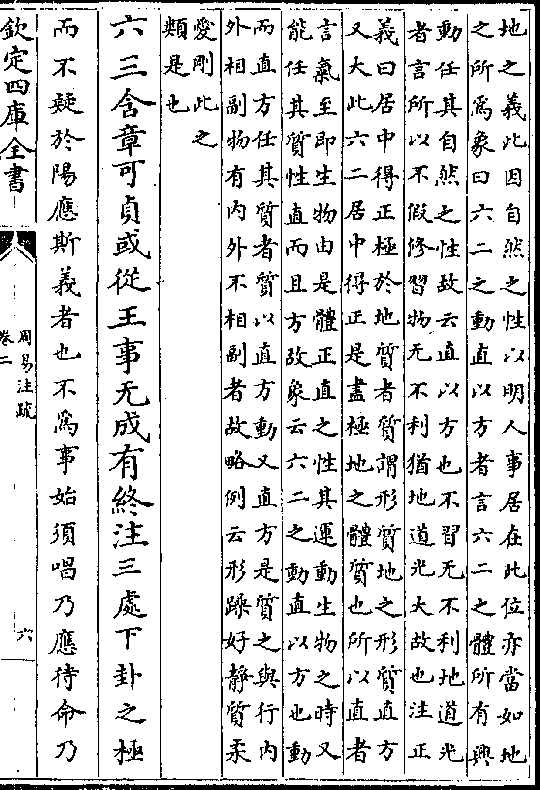 地之義此因自然之性以明人事居在此位亦當如地
之所為象曰六二之動直以方者言六二之體所有興
動任其自然之性故云直以方也不習无不利地道光
者言所以不假修習物无不利猶地道光大故也注正
義曰居中得正極於地質者質謂形質地之形質直方
又大此六二居中得正是盡極地之體質也所以直者
言氣至即生物由是體正直之性其運動生物之時又
能任其質性直而且方故象云六二之動直以方也動
而直方任其質者質以直方動又直方是質之與行内
外相副物有内外不相副者故略例云形躁好靜質柔
愛剛此之
類是也
六三含章可貞或從王事无成有終注三處下卦之極
而不疑於陽應斯義者也不為事始須唱乃應待命乃
欽定四庫全書
周易注疏
卷二
六